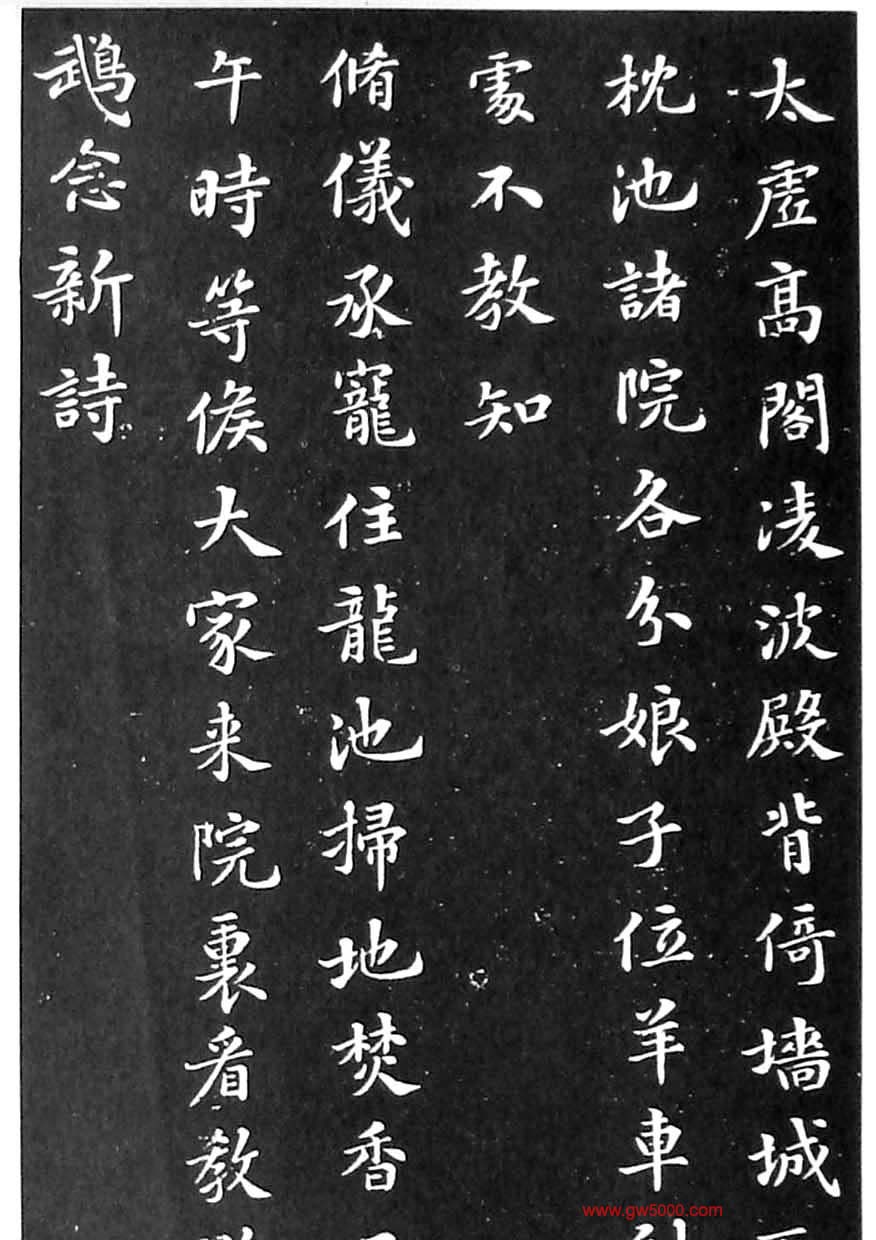 太虚高閣凌波殿背倚墻城
枕池諸院各分娘子位羊車
處不教知
脩儀承寵住龍池掃地焚香
午時等候大家来院裏看教
鵡念新詩
www.gw5000.com